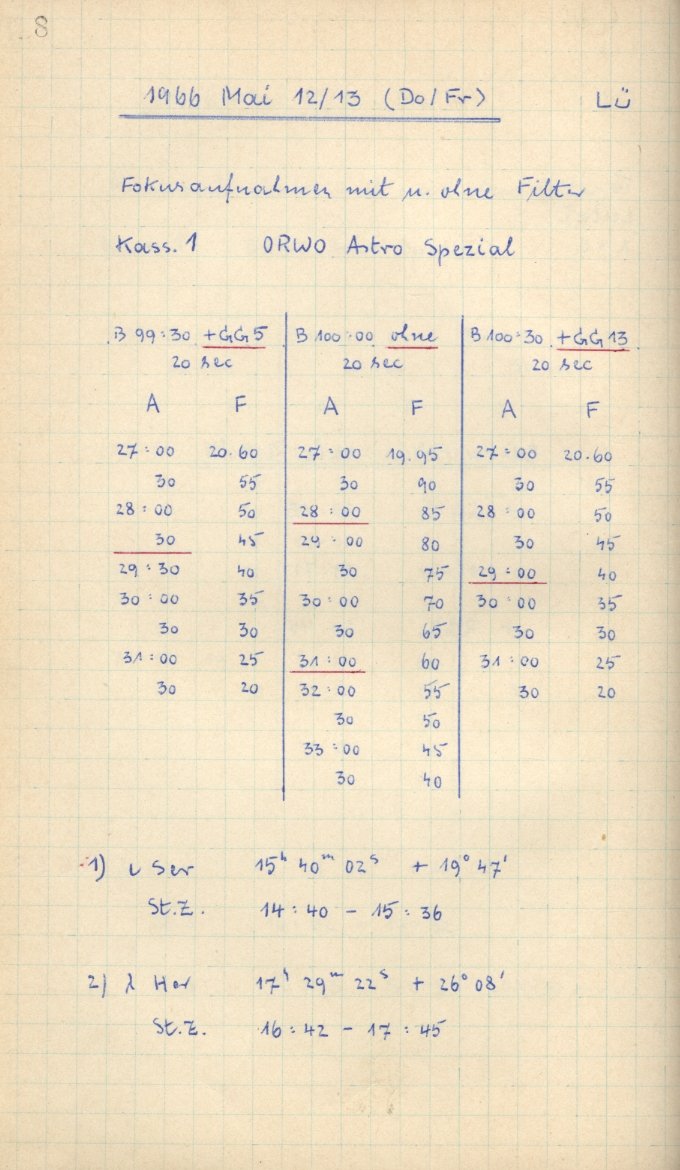 8
1966 Mai 12/13 (Do/Fr) LÜ
Fokusaufnahmen mit u. ohne Filter
Kass. 1 ORWO Astro Spezial
B 99:30 +GG5 B 100:00 ohne B 100:30 +GG13
20 sec 20 sec 20 sec
A F A F A F
27:00 20.60 27:00 19.95 27:00 20.60
30 55 30 90 30 55
28:00 50 28:00 85 28:00 50
30 45 29:00 80 30 45
29:30 40 30 75 29:00 40
30:00 35 30:00 70 30:00 35
30 30 30 65 30 30
31:00 25 31:00 60 31:00 25
30 20 32:00 55 30 20
30 50
33:00 45
30 40
1) ι Ser 15h 40m 02s + 19° 47'
St.Z. 14:40 - 15:36
2) λ Her 17h 29m 22s + 26° 08'
St.Z. 16:42 - 17:45